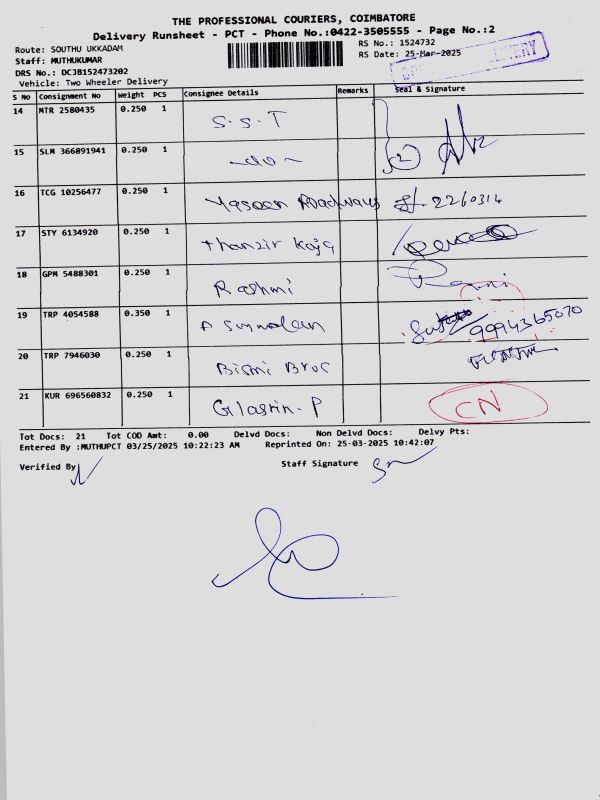 THE PROFESSIONAL COURIERS, COIMBATORE
Delivery Runsheet - PCT - Phone No.:0422-3505555 - Page No.:2
Route: SOUTHU UKKADAM
RS No.: 1524732
Staff: MUTHUKUMAR
RS Date: 25-Mar-2025
DRS No.: DCJB152473202
Vehicle: Two Wheeler Delivery
DELIVERY
S No Consignment No Weight PCS Consignee Details Remarks Seal & Signature
14 MTR 2580435 0.250 1 S.S.T
15 SLM 366891941 0.250 1 -do-
16 TCG 10256477 0.250 1 Yaseen Roadways 2260314
17 STY 6134920 0.250 1 Thanzir Koja
18 GPM 5488301 0.250 1 Rashmi
19 TRP 4054588 0.350 1 A 9994365070
20 TRP 7946030 0.250 1 Bismi Bros
21 KUR 696560832 0.250 1 Glasrin. P CN
Tot Docs: 21 Tot COD Amt: 0.00 Delvd Docs: Non Delvd Docs: Delvy Pts:
Entered By :MUTHUPCT 03/25/2025 10:22:23 AM Reprinted On: 25-03-2025 10:42:07
Verified By Staff Signature